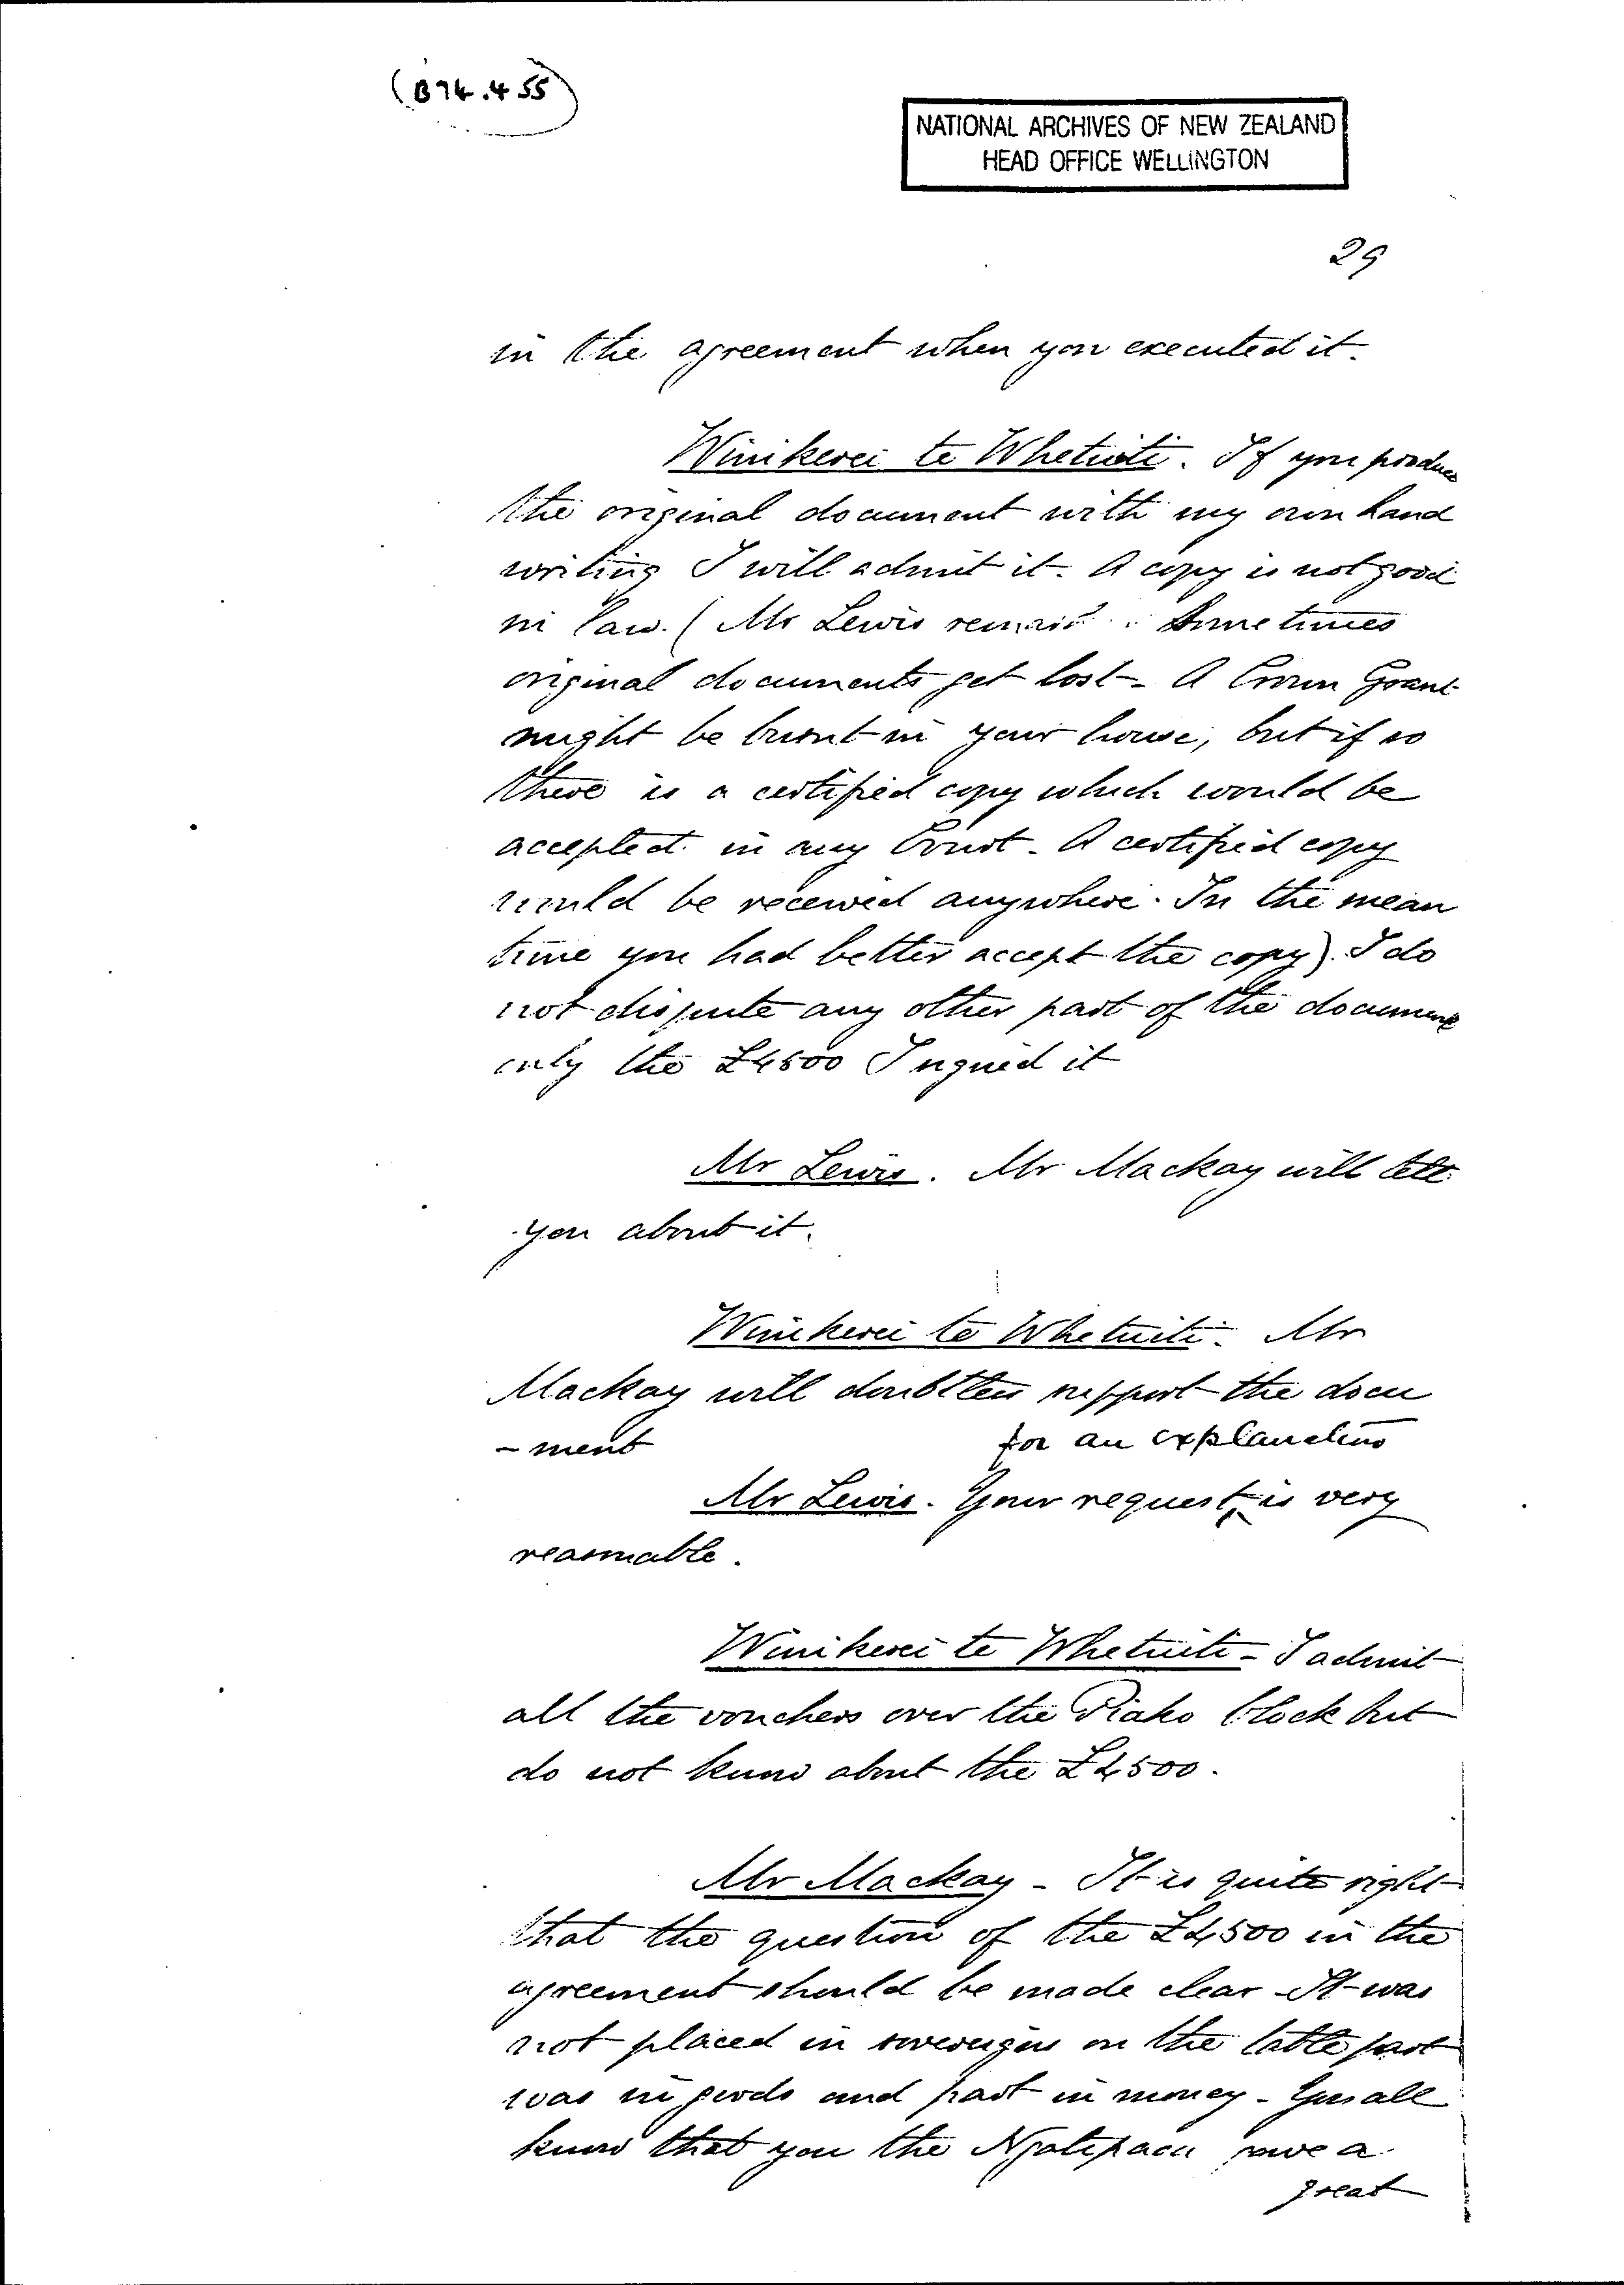 (B74.455)
NATIONAL ARCHIVES OF NEW ZEALAND
HEAD OFFICE WELLINGTON
29
in the agreement when you executed it.
Winikerei te Whetuiti. If you produce
the original document with my own hand
writing I will admit it. A copy is not good
in law. (Mr Lewis remark : Sometimes
original documents get lost - A Crown Grant
might be burnt in your house, but if so
there is a certified copy which would be
accepted in any Court - A certified copy
would be received anywhere. In the mean
time you had better accept the copy). I do
not dispute any other part of the document
only the £4500 I signed it
Mr Lewis. Mr Mackay will tell
you about it.
Winikerei te Whetuiti - Mr
Mackay will doubtless support the docu
- ment
for an explanation
Mr Lewis. Your request ^ is very
reasonable.
Winikerei te Whetuiti - I admit
all the vouchers over the Piako block but
do not know about the £4500.
Mr Mackay - It is quite right
that the question of the £4500 in the
agreement should be made clear - It was
not placed in sovereigns on the table part
was in goods and part in money - You all
know that you the Ngatipaoa owe a
great